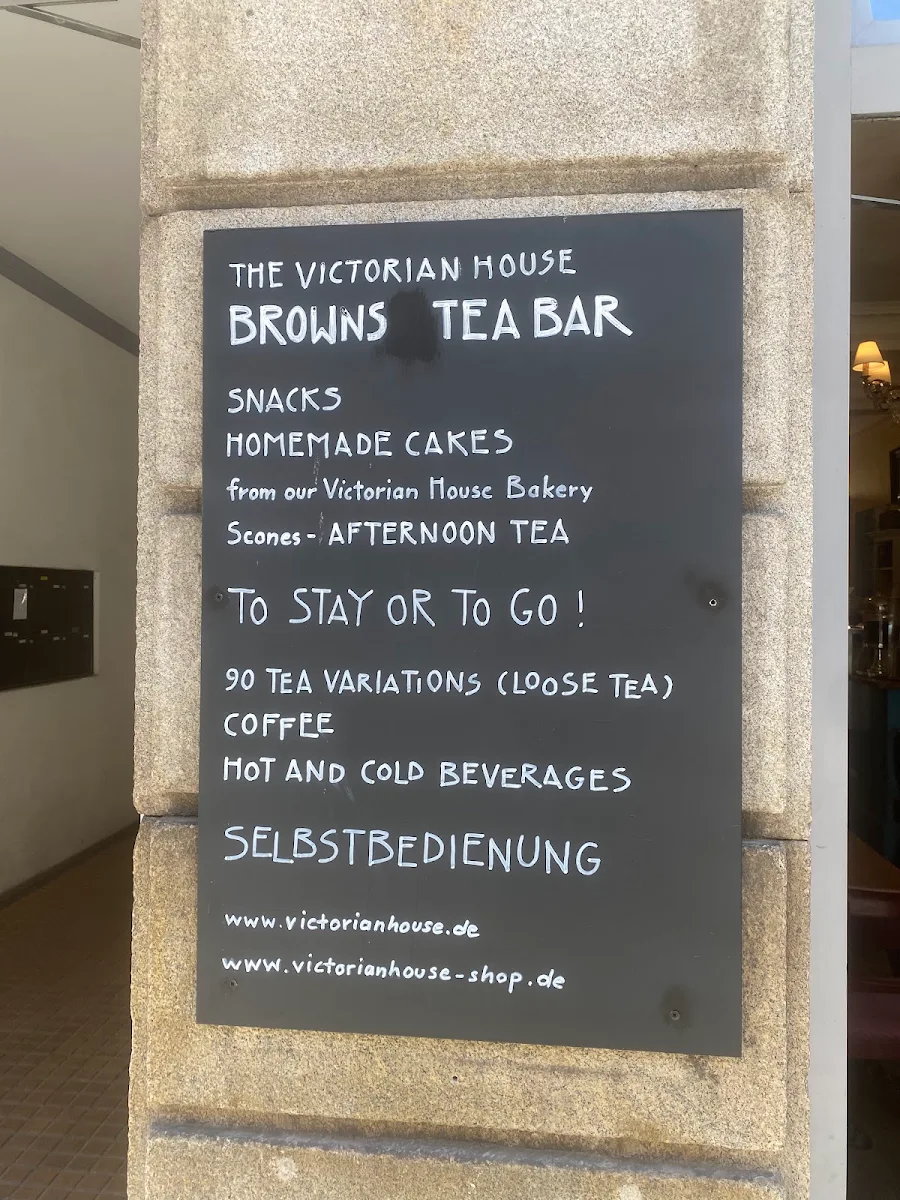 THE VICTORIAN HOUSE
BROWNS TEA BAR
SNACKS
HOMEMADE CAKES
from our Victorian House Bakery
Scones - AFTERNOON TEA
TO STAY OR TO GO !
90 TEA VARIATIONS (LOOSE TEA)
COFFEE
HOT AND COLD BEVERAGES
SELBSTBEDIENUNG
www.victorianhouse.de
www.victorianhouse-shop.de